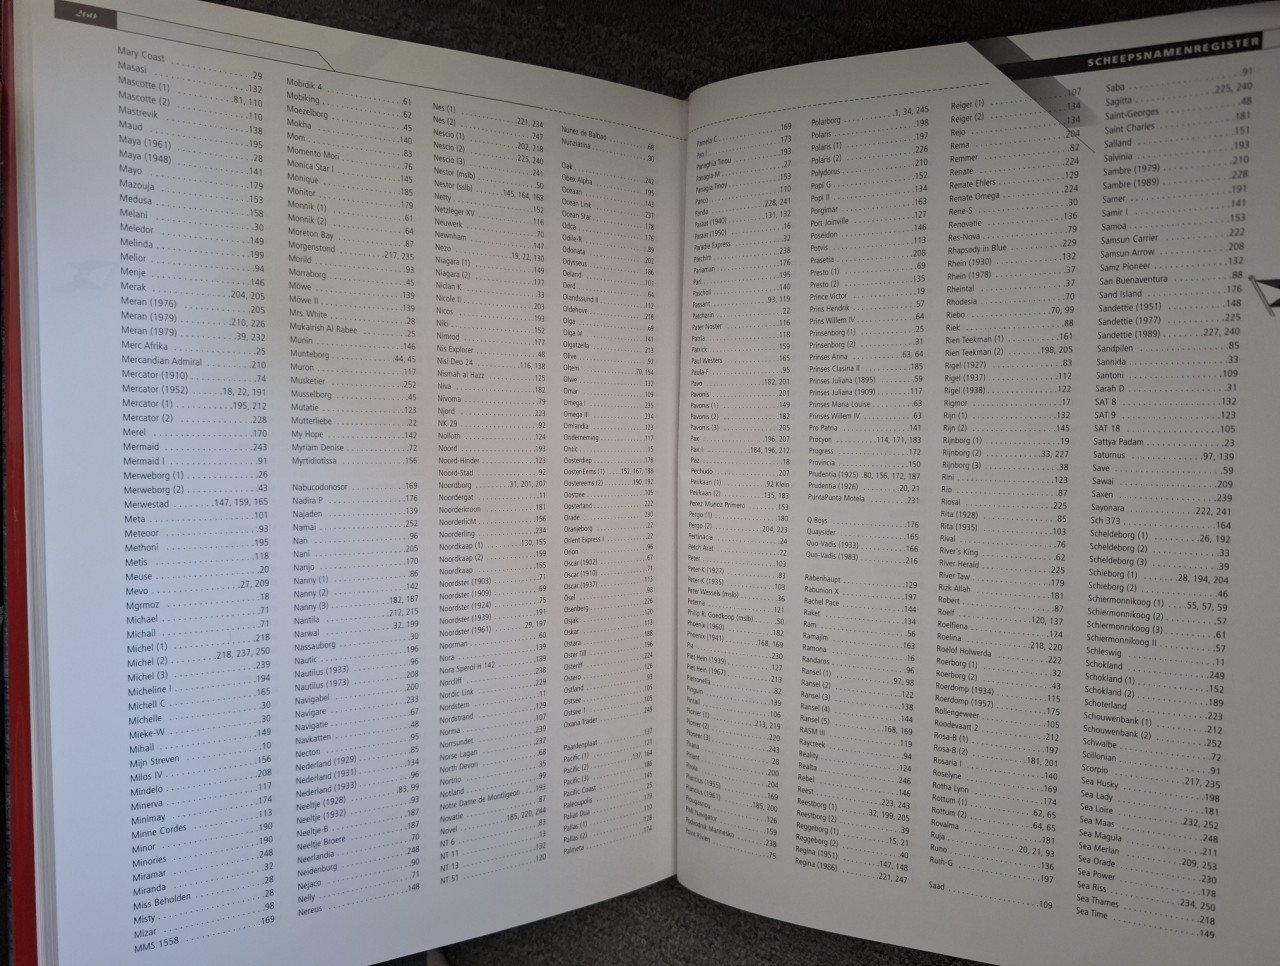 260
Mary Coast . . . .29
Masasi . . . .132
Mascotte (1) . . . .81, 110
Mascotte (2) . . . .110
Mastrevik . . . .138
Maud . . . .195
Maya (1961) . . . .28
Maya (1948) . . . .141
Mayo . . . .179
Mazouja . . . .153
Medusa . . . .158
Melani . . . .30
Meledor . . . .149
Melinda . . . .199
Melior . . . .94
Menje . . . .146
Merak . . . .204, 205
Meran (1976) . . . .205
Meran (1979) . . . .210, 226
Meran (1979) . . . .39, 232
Merc Afrika . . . .25
Mercandian Admiral . . . .210
Mercator (1910) . . . .74
Mercator (1952) . . . .18, 22, 191
Mercator (1) . . . .195, 212
Mercator (2) . . . .228
Merel . . . .170
Mermaid . . . .243
Mermaid I . . . .91
Merweborg (1) . . . .26
Merweborg (2) . . . .43
Merwestad . . . .147, 159, 165
Meta . . . .101
Meteoor . . . .93
Methoni . . . .195
Metis . . . .118
Meuse . . . .20
Mevo . . . .27, 209
Mgrmoz . . . .18
Michael . . . .71
Michail . . . .71
Michel (1) . . . .218
Michel (2) . . . .218, 237, 250
Michel (3) . . . .239
Micheline I . . . .194
Michell C . . . .165
Michelle . . . .30
Mieke-W . . . .30
Mihail . . . .149
Mijn Streven . . . .10
Milos IV . . . .156
Mindelo . . . .208
Minerva . . . .117
Minimay . . . .174
Minne Cordes . . . .113
Minor . . . .190
Minories . . . .190
Miramar . . . .248
Miranda . . . .32
Miss Beholden . . . .28
Misty . . . .28
Mizar . . . .98
MMS 1558 . . . .169
Mobidik 4 . . . .61
Mobiking . . . .62
Moezelborg . . . .45
Mokha . . . .140
Mom . . . .83
Momento Mori . . . .76
Monica Star I . . . .145
Monique . . . .185
Monitor . . . .179
Monnik (1) . . . .61
Monnik (2) . . . .64
Moreton Bay . . . .87
Morgenstond . . . .217, 235
Morild . . . .93
Morraborg . . . .45
Möwe . . . .139
Möwe II . . . .139
Mrs. White . . . .28
Mukairish Al Rabee . . . .25
Munin . . . .146
Munteborg . . . .44, 45
Muron . . . .117
Musketier . . . .252
Musselborg . . . .45
Mutatie . . . .123
Mutterliebe . . . .22
My Hope . . . .142
Myriam Denise . . . .72
Myrtidiotissa . . . .156
Nabucodonosor . . . .169
Nadira P . . . .176
Najaden . . . .139
Namai . . . .252
Nan . . . .96
Nani . . . .205
Nanjo . . . .170
Nanny (1) . . . .86
Nanny (2) . . . .142
Nanny (3) . . . .182, 187
Nantila . . . .212, 215
Narwal . . . .32, 199
Nassauborg . . . .30
Nautic . . . .196
Nautilus (1933) . . . .96
Nautilus (1973) . . . .208
Navigabel . . . .200
Navigare . . . .233
Navigatie . . . .67
Navkatten . . . .48
Necton . . . .95
Nederland (1929) . . . .85
Nederland (1931) . . . .134
Nederland (1933) . . . .96
Neeltje (1928) . . . .83, 99
Neeltje (1932) . . . .93
Neeltje-B . . . .187
Neeltje Broere . . . .187
Neerlandia . . . .70
Neidenburg . . . .248
Nejaco . . . .90
Nelly . . . .71
Nereus . . . .148
Nes (1) . . . .221, 234
Nes (2) . . . .247
Nescio (1) . . . .202, 218
Nescio (2) . . . .225, 240
Nescio (3) . . . .241
Nestor (mslb) . . . .50
Nestor (sslb) . . . .145, 164, 168
Netty . . . .152
Netzleger XV . . . .116
Neuwerk . . . .70
Newnham . . . .147
Nezo . . . .19, 22, 130
Niagara (1) . . . .149
Niagara (2) . . . .177
Niclan K . . . .33
Nicole II . . . .203
Nicos . . . .193
Niki . . . .152
Nimrod . . . .177
Nis Explorer . . . .48
Nisl Deo 24 . . . .116, 138
Nismah al Hazz . . . .125
Niva . . . .182
Nivoma . . . .79
Njord . . . .223
NK 29 . . . .92
Nolloth . . . .124
Noord . . . .193
Noord-Hinder . . . .123
Noord-Stad . . . .92
Noordborg . . . .31, 201, 207
Noordergat . . . .11
Noorderkroon . . . .181
Noorderlicht . . . .156
Noorderling . . . .234
Noordkaap (1) . . . .130, 155
Noordkaap (2) . . . .159
Noordkaap . . . .155
Noordster (1903) . . . .71
Noordster (1909) . . . .69
Noordster (1924) . . . .75
Noordster (1939) . . . .191
Noordster (1961) . . . .29, 197
Noorman . . . .60
Nora . . . .139
Nora Sperol H 142 . . . .189
Nordcliff . . . .238
Nordic Link . . . .229
Nordstem . . . .11
Nordstrand . . . .107
Norma . . . .239
Norrsundet . . . .232
Norse Lagan . . . .68
North Devon . . . .35
Nortrio . . . .99
Notland . . . .193
Notre Dame de Montligeon . . . .87
Novatie . . . .185, 220, 244
Novel . . . .83
NT 6 . . . .13
NT 11 . . . .132
NT 13 . . . .120
NT 51
Nunez de Balbao . . . .68
Nunziatina . . . .80
Oak . . . .242
Obex Alpha . . . .195
Oceaan . . . .143
Ocean Link . . . .231
Ocean Star . . . .178
Odca . . . .176
Odile-R . . . .89
Odonata . . . .202
Odysseus . . . .186
Oeland . . . .101
Oerd . . . .64
Olandssund II . . . .112
Oldehove . . . .218
Olga . . . .69
Olga M . . . .141
Olgatzella . . . .213
Olive . . . .92
Oltem . . . .70, 154
Olwe . . . .132
Omar . . . .109
Omega I . . . .235
Omega III . . . .234
Omlandia . . . .123
Onderneming . . . .117
Ontic . . . .15
Oosterdiep . . . .178
Ooster-Eems (1) . . . .152, 167, 188
Oostereems (2) . . . .190, 192
Oostzee . . . .105
Opsterland . . . .222
Orade . . . .230
Oranjeborg . . . .22
Orient Express I . . . .22
Orion . . . .96
Oscar (1902) . . . .67
Oscar (1910) . . . .71
Oscar (1937) . . . .113
Osel . . . .98
Osenberg . . . .226
Osjak . . . .120
Oskar . . . .113
Ostara . . . .188
Oster Till . . . .196
Osteriff . . . .224
Ostero . . . .126
Ostland . . . .93
Ostsee . . . .105
Ostsee I . . . .105
Oxana Trader . . . .249
Paardenplaat . . . .137
Pacific (1) . . . .121
Pacific (2) . . . .137, 164
Pacific (3) . . . .186
Pacific Coast . . . .145
Paleoupolis . . . .25
Paliat Dua . . . .179
Pallas (1) . . . .110
Pallas (2) . . . .128
Palmeta . . . .174
SCHEEPSNAMENREGISTER
Pamela C . . . .169
Pan I . . . .173
Panaghia Tinou . . . .193
Panagia M . . . .27
Panagia Tinoy . . . .153
Panco . . . .110
Panda . . . .228, 241
Paraat (1940) . . . .131, 132
Paraat (1950) . . . .16
Paradie Express . . . .32
Parchim . . . .238
Pariaman . . . .176
Parl . . . .195
Pascholl . . . .140
Passant . . . .93, 119
Patcharin . . . .22
Pater Noster . . . .116
Patria . . . .118
Patrick . . . .159
Paul Westers . . . .165
Paula-F . . . .95
Pavo . . . .182, 201
Pavonis . . . .201
Pavonis (1) . . . .149
Pavonis (2) . . . .182
Pavonis (3) . . . .205
Pax . . . .196, 207
Pax I . . . .184, 196, 212
Pez . . . .18
Pechudo . . . .207
Pelikaan (1) . . . .92 Klein
Pelikaan (2) . . . .135, 183
Perez Munoz Primero . . . .153
Pergo (1) . . . .180
Pergo (2) . . . .204, 223
Pertinacia . . . .24
Petch Arat . . . .22
Peter . . . .103
Peter-K (1927) . . . .83
Peter-K (1935) . . . .103
Peter Wessels (mslb) . . . .36
Peterna . . . .121
Philip R. Goedkoop (mslb) . . . .50
Phoenix (1960) . . . .182
Phoenix (1941) . . . .168, 169
Pia . . . .230
Piet Hein (1939) . . . .127
Piet Hein (1967) . . . .213
Pietronella . . . .82
Pinguin . . . .139
Pintail . . . .106
Pionier (1) . . . .213, 219
Pionier (2) . . . .220
Pioneer (3) . . . .243
Pirana . . . .28
Pirient . . . .200
Pirola . . . .204
Plancius (1955) . . . .169
Plancius (1961) . . . .185, 200
Plougasnou . . . .126
PMI Navigator . . . .159
Podvodnik Marinesko . . . .238
Point Rivien . . . .75
Polarborg . . . .1, 34, 245
Polaris . . . .198
Polaris (1) . . . .197
Polaris (2) . . . .226
Polydorus . . . .210
Popi G . . . .152
Popi II . . . .134
Porgimar . . . .163
Port Joinville . . . .127
Poseidon . . . .146
Potvis . . . .113
Prasetia . . . .208
Presto (1) . . . .69
Presto (2) . . . .135
Prince Victor . . . .19
Prins Hendrik . . . .57
Prins Willem IV . . . .64
Prinsenborg (1) . . . .25
Prinsenborg (2) . . . .31
Prinses Anna . . . .63, 64
Prinses Clasina II . . . .185
Prinses Juliana (1895) . . . .59
Prinses Juliana (1909) . . . .117
Prinses Maria Louise . . . .63
Prinses Willem IV . . . .63
Pro Patria . . . .141
Procyon . . . .114, 171, 183
Progress . . . .172
Provincia . . . .150
Prudentia (1925) .80, 156, 172, 187
Prudentia (1926) . . . .20, 21
PuntaPunta Motela . . . .231
Q Boys . . . .176
Quaysider . . . .165
Quo-Vadis (1933) . . . .166
Quo-Vadis (1983) . . . .216
Rabenhaupt . . . .129
Rabunion X . . . .197
Rachel Pace . . . .144
Raket . . . .134
Ram . . . .56
Ramajim . . . .163
Ramona . . . .16
Randaros . . . .96
Ransel (1) . . . .97, 98
Ransel (2) . . . .122
Ransel (3) . . . .138
Ransel (4) . . . .144
Ransel (5) . . . .168, 169
RASM III . . . .119
Raycreek . . . .94
Reality . . . .124
Realta . . . .246
Rebel . . . .146
Reest . . . .223, 243
Reestborg (1) . . . .32, 199, 205
Reestborg (2) . . . .39
Reggeborg (1) . . . .15, 21
Reggeborg (2) . . . .40
Regina (1951) . . . .147, 148
Regina (1986) . . . .221, 247
Reiger (1) . . . .107
Reiger (2) . . . .134
Rejo . . . .134
Rema . . . .204
Remmer . . . .82
Renate . . . .224
Renate Ehlers . . . .129
Renate Omega . . . .224
Rene-S . . . .30
Renovatie . . . .136
Res-Nova . . . .79
Rhapsody in Blue . . . .229
Rhein (1930) . . . .132
Rhein (1978) . . . .37
Rheintal . . . .37
Rhodesia . . . .70
Riebo . . . .70, 99
Riek . . . .88
Rien Teekman (1) . . . .161
Rien Teekman (2) . . . .198, 205
Rigel (1927) . . . .83
Rigel (1937) . . . .112
Rigel (1938) . . . .122
Rigmor . . . .17
Rijn (1) . . . .132
Rijn (2) . . . .145
Rijnborg (1) . . . .19
Rijnborg (2) . . . .33, 227
Rijnborg (3) . . . .38
Rini . . . .123
Rio . . . .87
Riosal . . . .225
Rita (1928) . . . .85
Rita (1935) . . . .103
Rival . . . .76
River's King . . . .62
River Herald . . . .225
River Taw . . . .179
Rizk Allah . . . .181
Robert . . . .87
Roelf . . . .120, 137
Roelfiena . . . .124
Roelina . . . .218, 220
Roelof Holwerda . . . .222
Roerborg (1) . . . .32
Roerborg (2) . . . .43
Roerdomp (1934) . . . .115
Roerdomp (1957) . . . .175
Rollengeweer . . . .105
Roodevaart 2 . . . .212
Rosa-B (1) . . . .197
Rosa-B (2) . . . .181, 201
Rosaria I . . . .140
Roselyne . . . .169
Rotha Lynn . . . .174
Rottum (1) . . . .62, 65
Rottum (2) . . . .64, 65
Rovalma . . . .181
Ruja . . . .20, 21, 93
Runo . . . .136
Ruth-G . . . .197
Saad . . . .109
Saba . . . .91
Sagitta . . . .225, 240
Saint-Georges . . . .48
Saint Charles . . . .181
Salland . . . .151
Salvinia . . . .193
Sambre (1979) . . . .210
Sambre (1989) . . . .228
Samer . . . .191
Samir I . . . .141
Samoa . . . .153
Samsun Carrier . . . .222
Samsun Arrow . . . .208
Samz Pioneer . . . .132
San Buenaventura . . . .88
Sand Island . . . .176
Sandettie (1951) . . . .148
Sandettie (1977) . . . .225
Sandettie (1989) . . . .227, 240
Sandpilen . . . .85
Sannida . . . .33
Santoni . . . .109
Sarah D . . . .31
SAT 8 . . . .132
SAT 9 . . . .123
SAT 18 . . . .105
Sattya Padam . . . .23
Saturnus . . . .97, 139
Save . . . .59
Sawai . . . .209
Saxen . . . .239
Sayonara . . . .222, 241
Sch 373 . . . .164
Scheldeborg (1) . . . .26, 192
Scheldeborg (2) . . . .33
Scheldeborg (3) . . . .39
Schieborg (1) . . . .28, 194, 204
Schieborg (2) . . . .46
Schiermonnikoog (1) . . . .55, 57, 59
Schiermonnikoog (2) . . . .57
Schiermonnikoog (3) . . . .61
Schiermonnikoog II . . . .57
Schleswig . . . .11
Schokland . . . .249
Schokland (1) . . . .152
Schokland (2) . . . .189
Schoterland . . . .223
Schouwenbank (1) . . . .212
Schouwenbank (2) . . . .252
Schwalbe . . . .72
Scillonian . . . .91
Scorpio . . . .217, 235
Sea Husky . . . .198
Sea Lady . . . .181
Sea Loire . . . .232, 252
Sea Maas . . . .248
Sea Magula . . . .211
Sea Merlan . . . .209, 253
Sea Orade . . . .230
Sea Power . . . .178
Sea Riss . . . .234, 250
Sea Thames . . . .218
Sea Time . . . .149